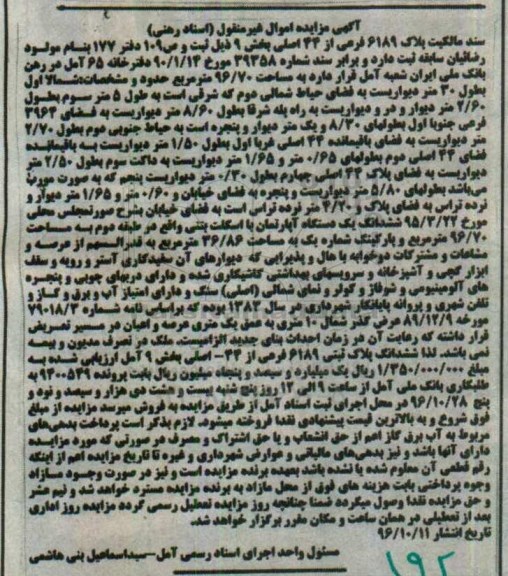 آگهی مزایده اموال غیرمنقول (اسناد رهنی)
سند مالکیت پلاک ۶۱۸۹ فرعی از ۴۴ اصلی بخش ۹ ذیل ثبت و ص۱۰۹ دفتر ۱۷۷ بنام مولود
رضائیان سابقه ثبت دارد و برابر سند شماره ۳۹۳۵۸ مورخ ۹۰/۱/۱۳ دفترخانه ۶۵ آمل در رهن
بانک ملی ایران شعبه آمل قرار دارد به مساحت ۹۶/۷۰ مترمربع حدود و مشخصات:شمالا اول
بطول ۳۰ متر دیواریست به فضای حیاط شمالی دوم که شرقی است به طول ۵ متر سوم بطول
۲/۶۰ متر دیوار و در و دیواریست به راه پله شرقا بطول ۸/۶۰ متر دیواریست به فضای ۳۹۶۴
فرعی جنوبا اول بطولهای ۸/۳۰ و یک متر دیوار و پنجره است به حیاط جنوبی دوم بطول ۲/۷۰
متر دیواریست به فضای باقیمانده ۴۴ اصلی غربا اول بطول ۱/۵۰ متر دیواریست به باقیمانده
فضای ۴۴ اصلی دوم بطولهای ۰/۶۵ متر و ۱/۶۵ متر دیواریست به داکت سوم بطول ۲/۵۰ متر
دیواریست به فضای پلاک ۴۴ اصلی چهارم بطول ۰/۳۰ متر دیواریست پنجم که به صورت مورب
می‌باشد بطولهای ۵/۸۰ متر دیواریست و پنجره به فضای خیابان و ۰/۶۰ متر و ۱/۶۵ متر دیوار و
نرده تراس به فضای پلاک ۴/۲۰ متر نرده تراس است به فضای خیابان بشرح صورتمجلس محلی
مورخ ۹۵/۳/۲۲ ششدانگ یک دستگاه آپارتمان با اسکلت بتنی واقع در طبقه دوم به مساحت
۹۶/۷۰ مترمربع و پارکینگ شماره یک به مساحت ۳۶/۸۶ مترمربع به قدرالسهم از عرصه و
مشاعات و مشترکات دوخوابه با هال و پذیرایی که دیوارهای آن سفیدکاری آستر و رویه و سقف
ابزار گچی و آشپزخانه و سرویسهای بهداشتی کاشیکاری شده و دارای دربهای چوبی و پنجره
های آلومینیومی و شوفاژ و کولر و نمای شمالی (اصلی) سنگ و دارای امتیاز آب و برق و گاز و
تلفن شهری و پروانه پایانکار شهرداری در سال ۱۳۸۳ بوده و براساس نامه شماره ۷۹۰۱۸/۳
مورخه ۸۹/۱۲/۹ عرض گذر شمال ۱۰ متری به عمق یک متری عرصه و اعیان در مسیر تعریض
قرار داشته که رعایت آن در زمان احداث بنای جدید الزامیست. ملک در تصرف مدیون و بیمه
نمی باشد. لذا ششدانگ پلاک ثبتی ۶۱۸۹ فرعی از ۴۴- اصلی بخش ۹ آمل ارزیابی شده به
مبلغ ۱/۳۵۰/۰۰۰/۰۰۰ ریال یک میلیارد و سیصد و پنجاه میلیون ریال بابت پرونده ۹۴۰۰۵۳۹ به
طلبکاری بانک ملی آمل از ساعت ۹ الی ۱۲ روز پنج شنبه بیست و هشت دی هزار و سیصد و نود و
پنج ۹۶/۱۰/۲۸ در محل اجرای ثبت اسناد آمل از طریق مزایده به فروش میرسد مزایده از مبلغ
فوق شروع و به بالاترین قیمت پیشنهادی نقدا فروخته میشود. لازم بذکر است پرداخت بدهی‌های
مربوط به آب برق گاز اعم از حق انشعاب و یا حق اشتراک و مصرف در صورتی که مورد مزایده
دارای آنها باشد و نیز بدهی‌های مالیاتی و عوارض شهرداری و غیره تا تاریخ مزایده اعم از اینکه
رقم قطعی آن معلوم شده یا نشده باشد بعهده برنده مزایده است و نیز در صورت وجود مازاد
وجوه پرداختی بابت هزینه های فوق از محل مازاد به برنده مزایده مسترد خواهد شد و نیم عشر
و حق مزایده نقدا وصول میگردد ضمنا چنانچه روز مزایده تعطیل رسمی گردد مزایده روز اداری
بعد از تعطیلی در همان ساعت و مکان مقرر برگزار خواهد شد.
تاریخ انتشار ۹۶/۱۰/۱۱
مسئول واحد اجرای اسناد رسمی آمل-سیداسماعیل بنی هاشمی
۱۹۲